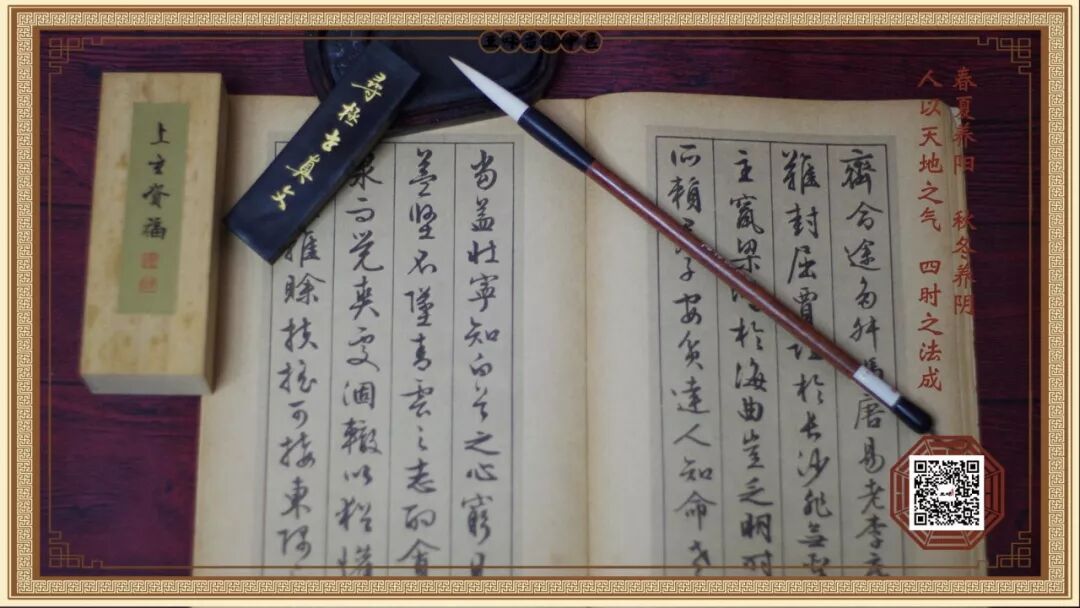 春夏养阳 秋冬养阴
人以天地之气 四时之法成
齊命途多舛馮唐易老李廣
難封屈賈誼於長沙非無聖
主竄梁鴻於海曲豈乏明時
所賴君子安貧達人知命老
當益壯寧知白首之心窮且
益堅不墜青雲之志酌貪
泉而覺爽處涸轍以猶懽
雖賒扶搖可接東隅